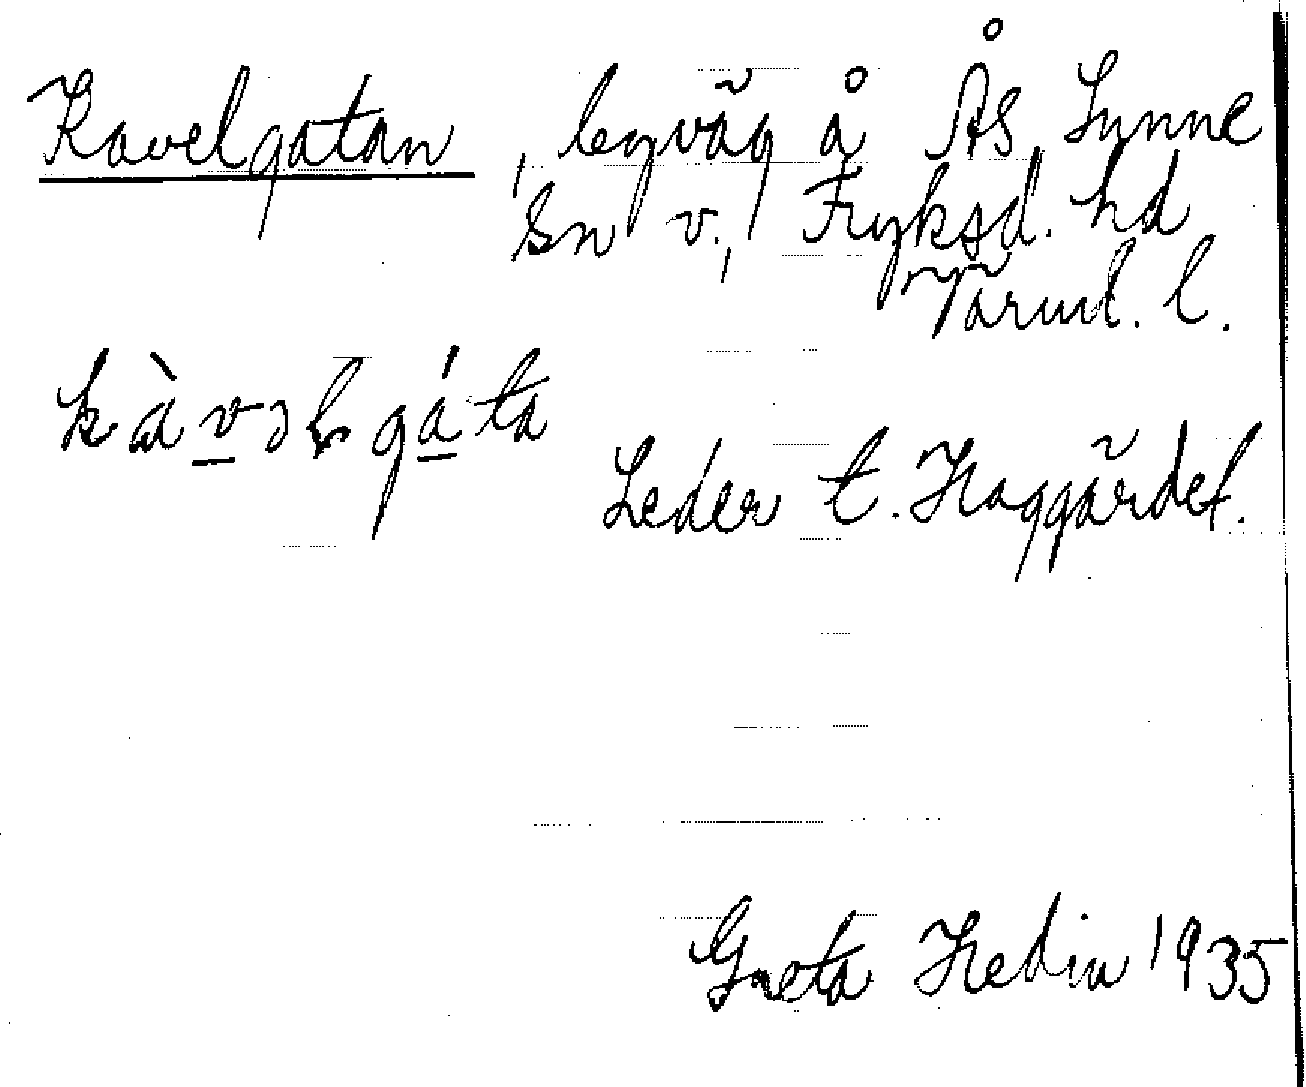 Kavelgatan, byväg å Ås, Sunne
sn v., Fryksd. hd
Värml. l.
kàvəlgáta
Leder t. Haggärdet.
Greta Hedin 1935